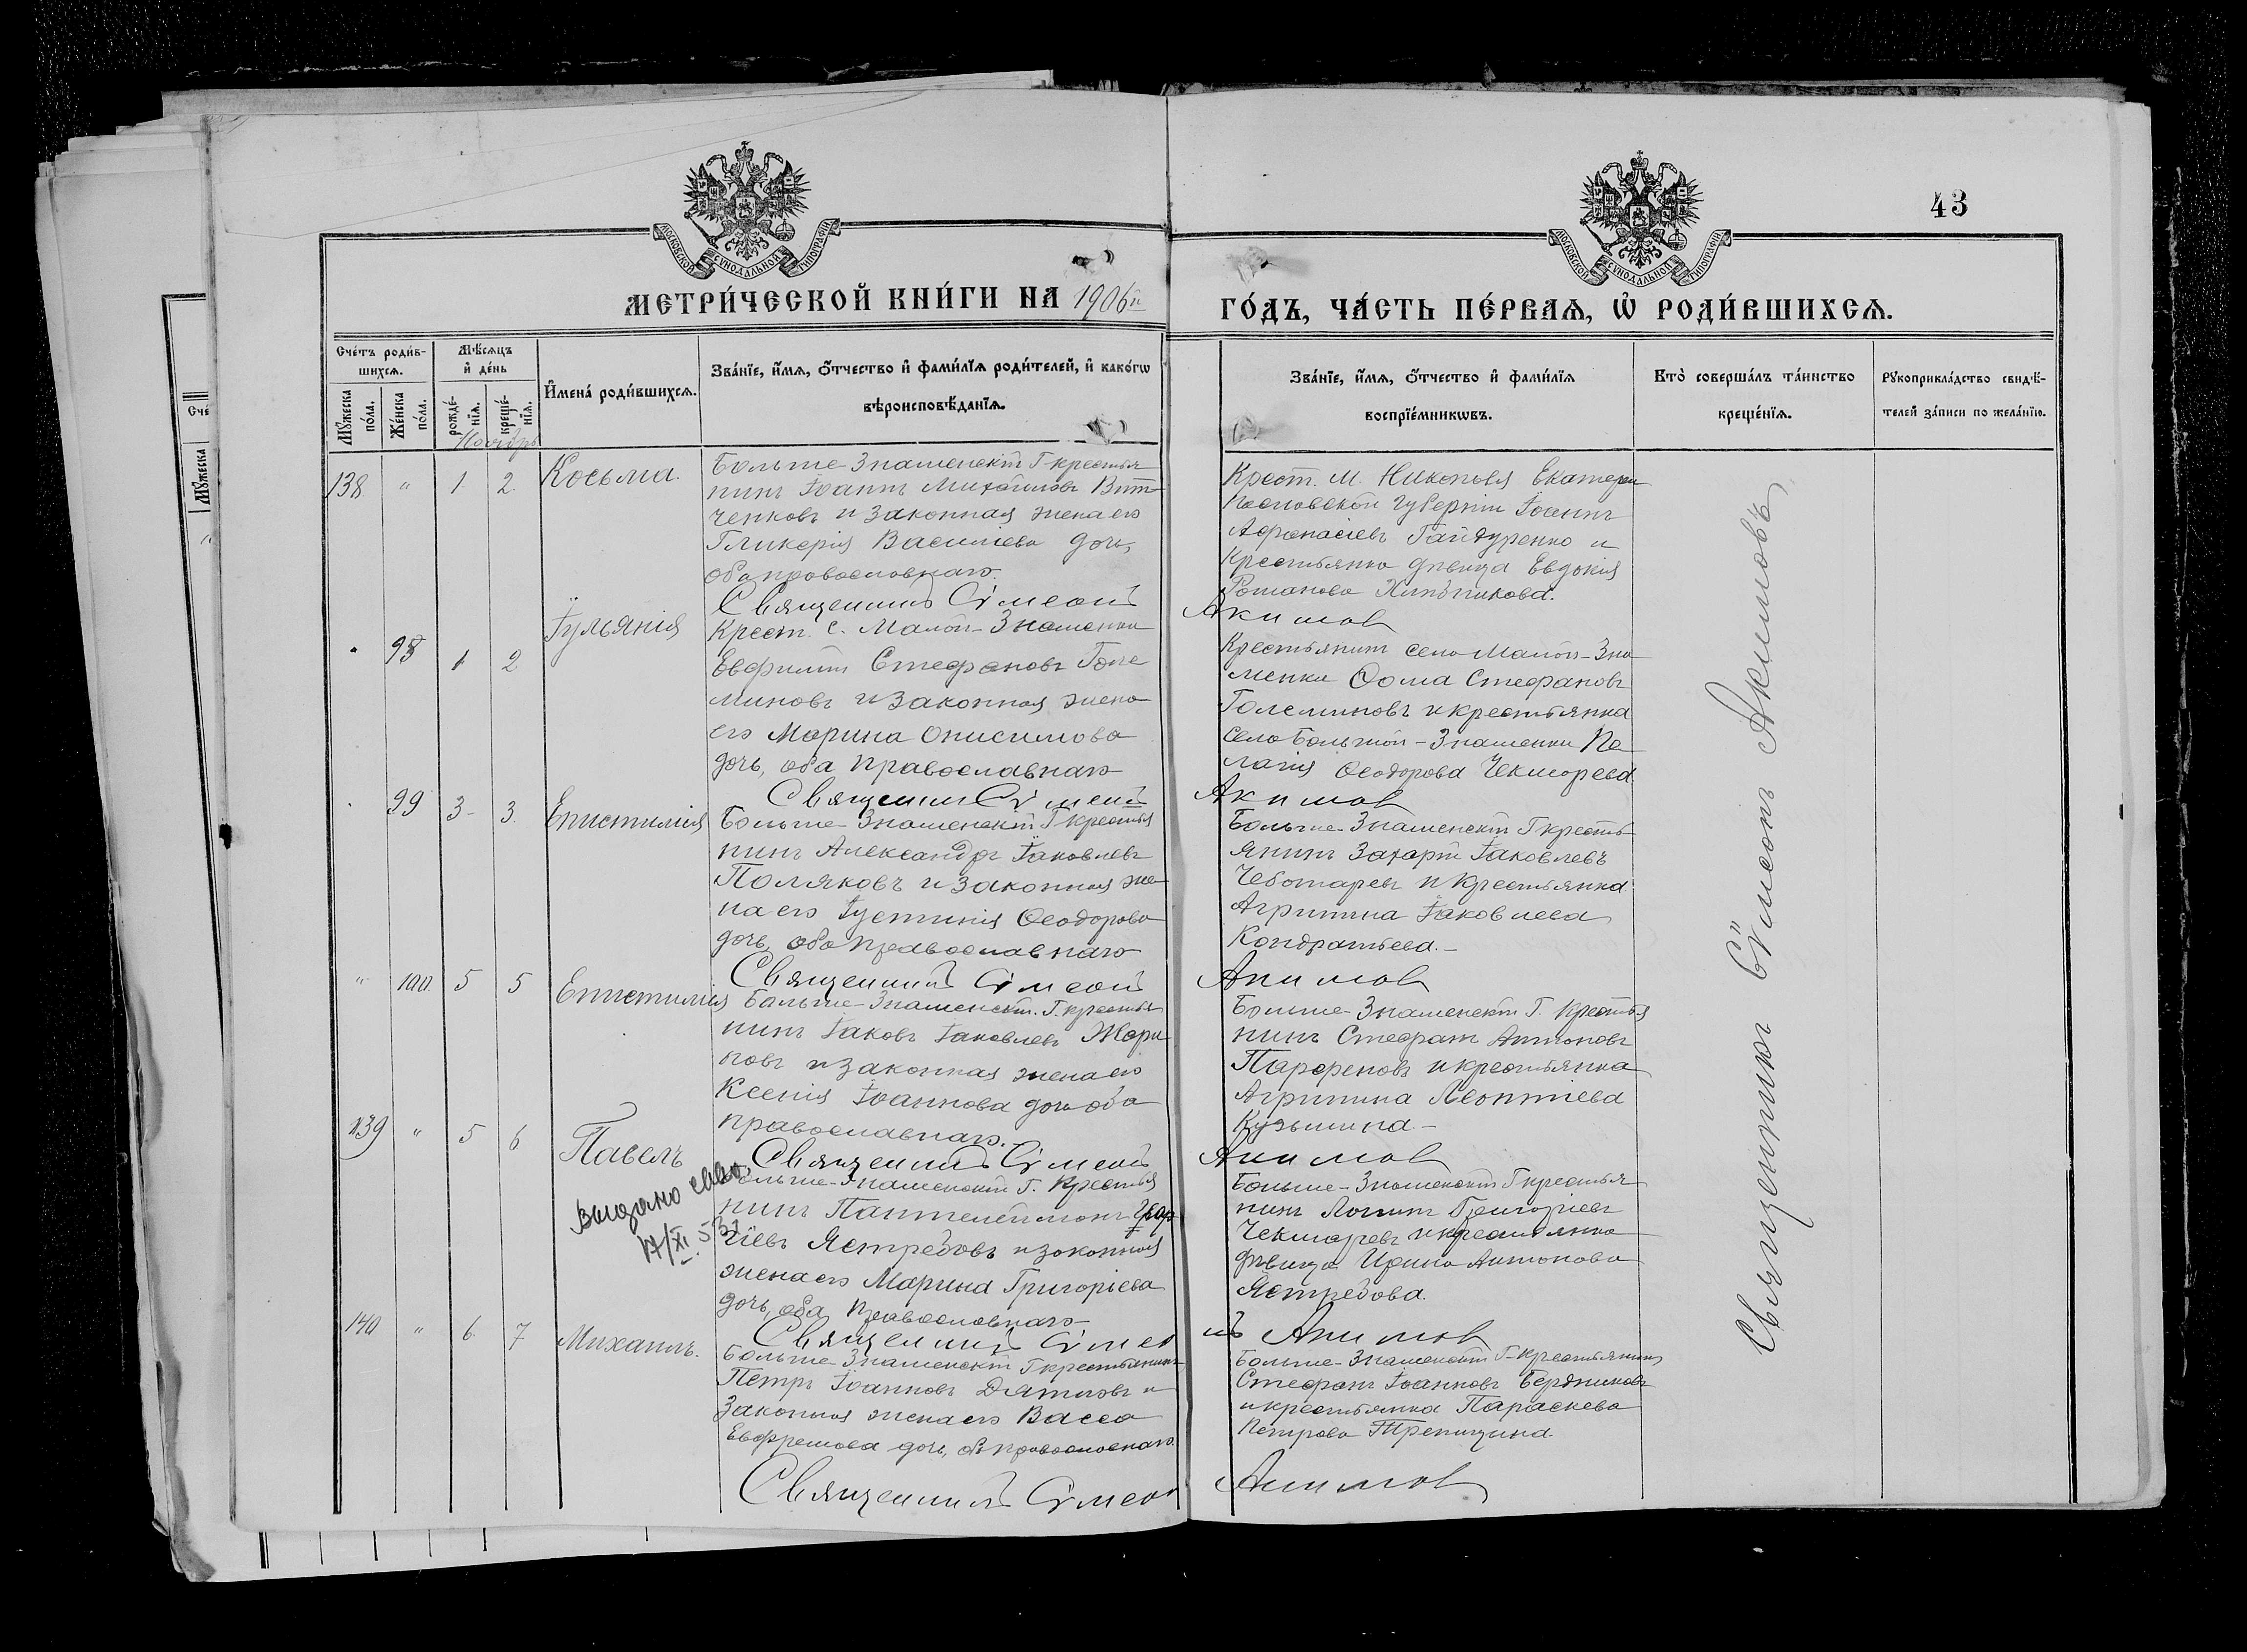 43
МОСКОВСКОЙ СѴНОДАЛЬНОЙ ТИПОГРАФІИ
МОСКОВСКОЙ СѴНОДАЛЬНОЙ ТИПОГРАФІИ
МЕТРИ́ЧЕСКОЙ КНИ́ГИ НА 1906й ГО́ДЪ, ЧА́СТЬ ПЕ́РВАѦ, Ѡ҆ РОДИ́ВШИХСѦ.
Сче́тъ роди́в-
шихсѧ.
Мꙋ́жеска по́ла.
Же́нска по́ла.
Мѣ́сѧцъ
и҆ де́нь
рожде́-
нїѧ.
креще́-
нїѧ.
И҆мена̀ роди́вшихсѧ.
Зва́нїе, и҆́мѧ, ѻ҆́тчество и҆ фами́лїѧ роди́телей, и҆ како́гѡ
вѣроисповѣ́данїѧ.
Зва́нїе, и҆́мѧ, ѻ҆́тчество и҆ фами́лїѧ
воспрїе́мникѡвъ.
Кто̀ соверша́лъ та́инство
креще́нїѧ.
Рꙋкоприкла́дство свидѣ́-
телей за́писи по жела́нїю.
Ноябрь
138 " 1 2 Косьма.
Больше Знаменскій Г-крестья
нинъ Іоаннъ Михайловъ Вит
ченковъ и законная жена его
Гликерія Василіева дочь,
оба православнаго.
Священникъ Сѵмеонъ Акимовъ
Крест. М. Никополя Екатери
нославской губерніи Іоаннъ
Афанасіевъ Гайдуренко и
крестьянка дѣвица Евдокія
Романова
98 1 2 Іульянія
Крест. с. Малой-Знаменки
Евфимій Стефановъ Голе
миновъ и законная жена
его Марина Онисимова
дочь, оба православнаго
Священникъ Сѵмеонъ Акимовъ
Крестьянинъ села Малой-Зна
менки Ѳома Стефановъ
Големиновъ и крестьянка
села Большой-Знаменки Пе
лагія Ѳеодорова Чекмарева
99 3 3. Епистимія
Больше-Знаменскій Г крестья
нинъ Александръ Іаковлевъ
Поляковъ и законная же
на его Іустинія Ѳеодорова
дочь, оба православнаго
Священникъ Сѵмеонъ Акимовъ
Больше-Знаменскій Г кресть
янинъ Захарій Іаковлевъ
Чеботаревъ и крестьянка
Агрипина Іаковлева
Кондратьева.-
" 100. 5 5 Епистимія
Больше-Знаменскій. Г. крестья
нинъ Іаковъ Іаковлевъ Жари
ковъ и законная жена его
Ксенія Іоаннова дочь оба
православнаго.
Священникъ Сѵмеонъ Акимовъ
Больше-Знаменскій Г. крестья
нинъ Стефанъ Антоновъ
Парфеновъ и крестьянка
Агрипина Леонтіева
Кузьмина-
139 " 5 6 Павелъ
выдано свид.
17/XI 53
Больше-Знаменскій Г. крестья
нинъ Пантелеймонъ Геор
гіевъ Ястребовъ и законная
жена его Марина Григоріева
дочь, оба православнаго
Священникъ Сѵмеонъ Акимовъ
Больше-Знаменскій Г крестья
нинъ Логинъ Григоріевъ
Чекмаревъ и крестьянка
дѣвица Ирина Антонова
Ястребова.
140 " 6. 7 Михаилъ.
Больше-Знаменскій Г крестьянинъ
Петръ Іоанновъ Дятловъ и
законная жена его Васса
Евфремова дочь, оба православнаго.
Священникъ Сѵмеонъ Акимовъ
Больше-Знаменскій Г-крестьянинъ
Стефанъ Іоанновъ Бердниковъ
и крестьянка Параскева
Петрова
Священникъ Сѵмеонъ Акимовъ